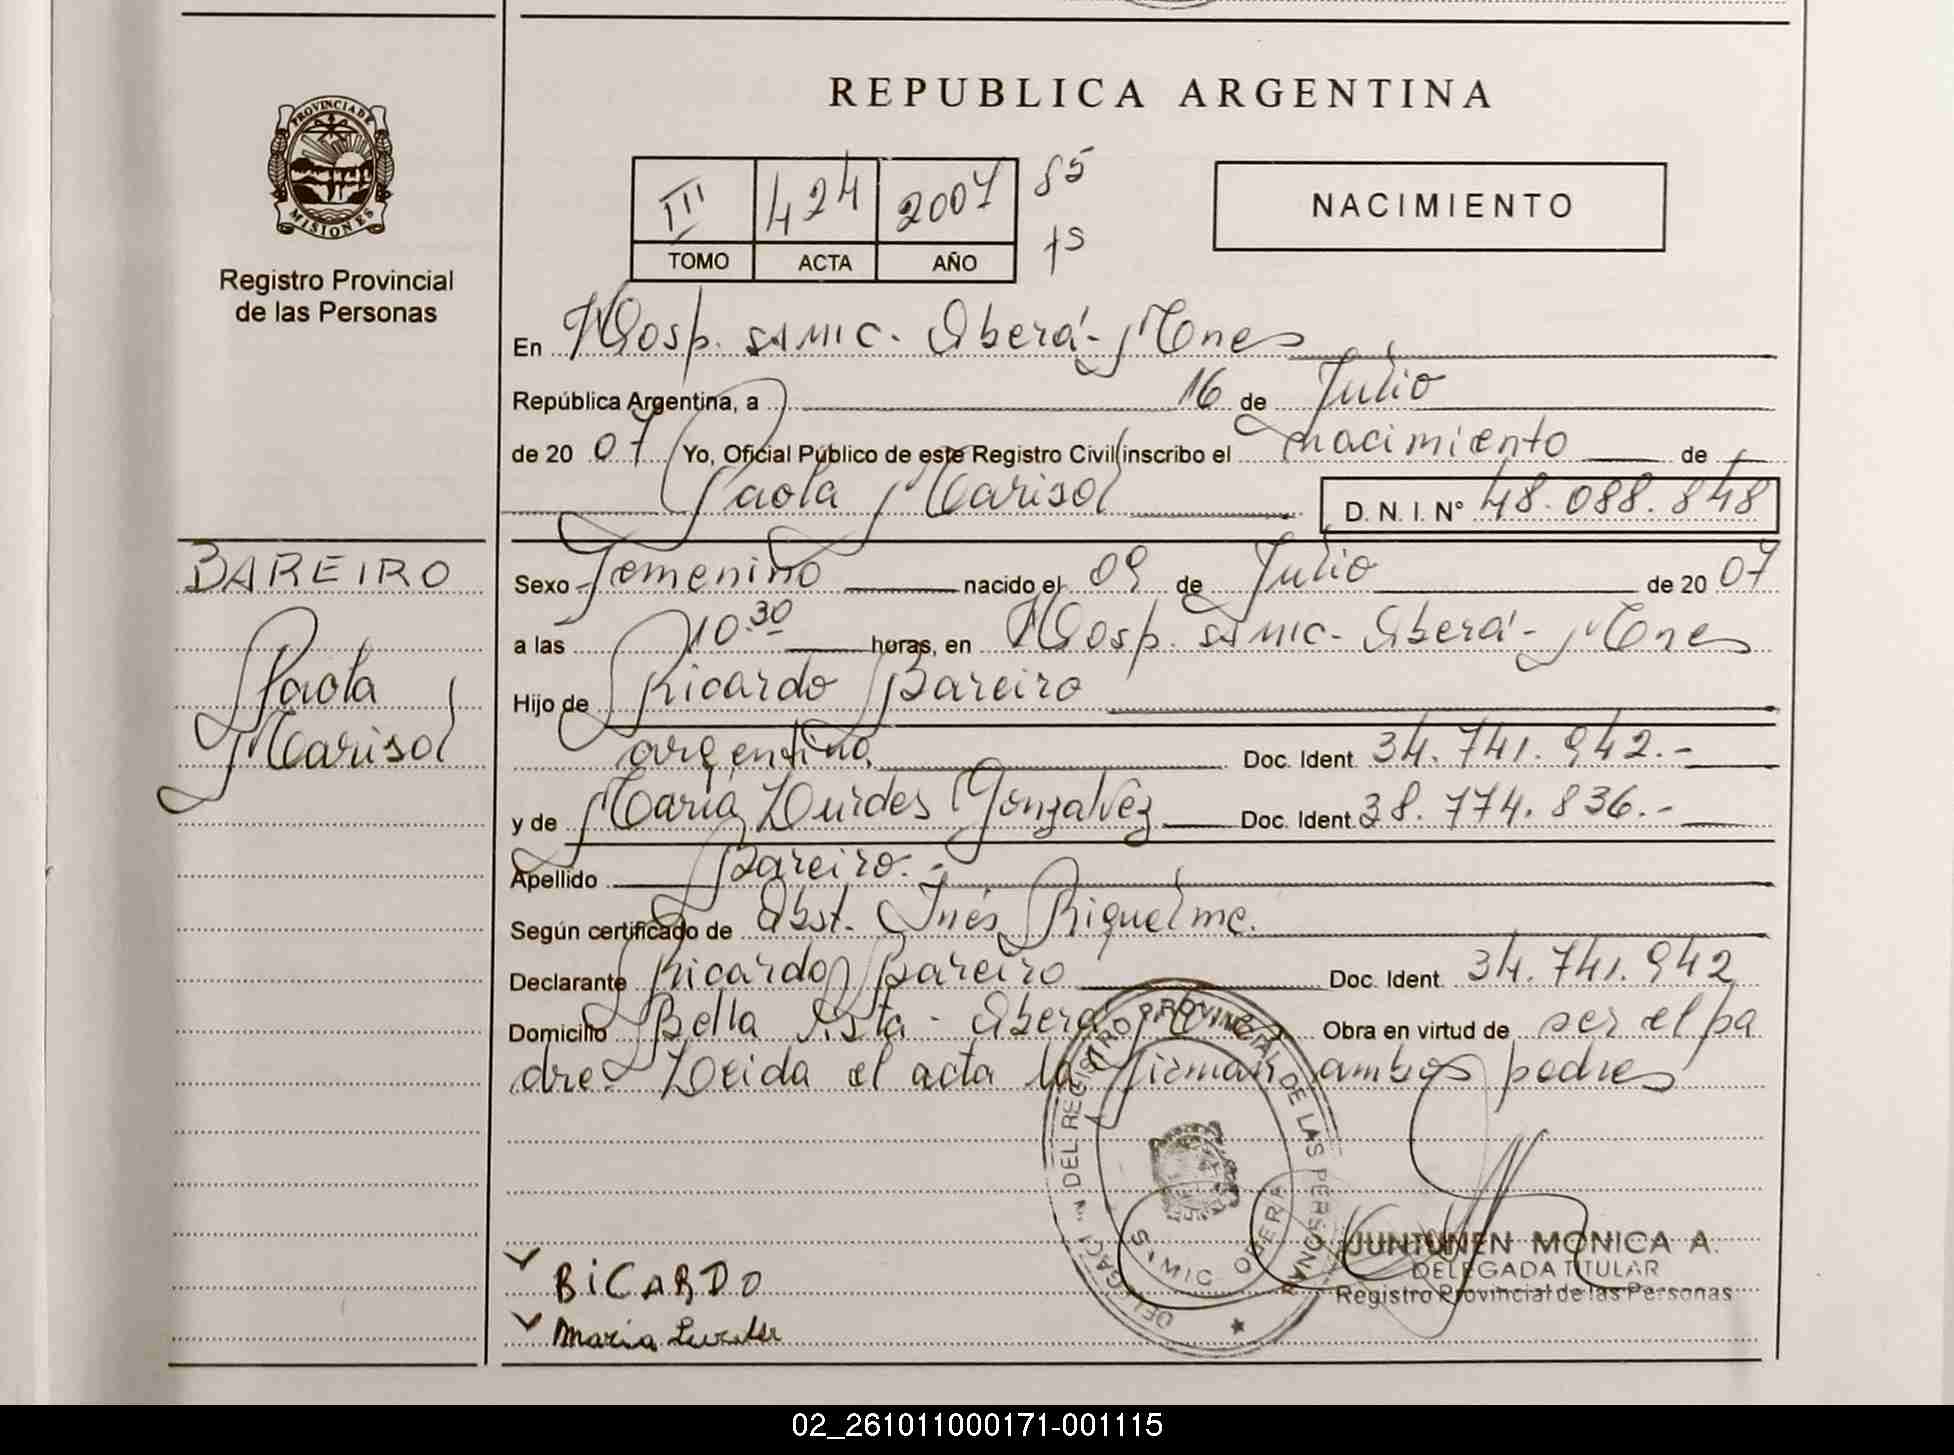 REPUBLICA ARGENTINA
PROVINCIA DE
MISIONES
Registro Provincial
de las Personas
III 424 2007 85
TOMO ACTA AÑO 15
NACIMIENTO
En Hosp. SAMIC. Oberá - Mnes
República Argentina, a 16 de Julio
de 20 07 Yo, Oficial Público de este Registro Civil inscribo el nacimiento de
Paola Marisol D. N. I. N° 48.088.848
BAREIRO
Paola
Marisol
Sexo Femenino nacido el 09 de Julio de 20 07
a las 10.30 horas, en Hosp. SAMIC - Oberá - Mnes
Hijo de Ricardo Bareiro
argentino Doc. Ident. 34.741.942.-
y de Maria Lourdes Gonzalvez Doc. Ident. 38.774.836.-
Apellido Bareiro.-
Según certificado de Obst. Inés Riquelme.
Declarante Ricardo Bareiro Doc. Ident. 34.741.942
Domicilio Bella Vista - Oberá Obra en virtud de ser el pa
dre. Leida el acta la firman ambos padres
DEL REGISTRO PROVINCIAL DE LAS PERSONAS
JUNTUNEN MONICA A.
DELEGADA TITULAR
Registro Provincial de las Personas
RiCARDO
Maria
02_261011000171-001115